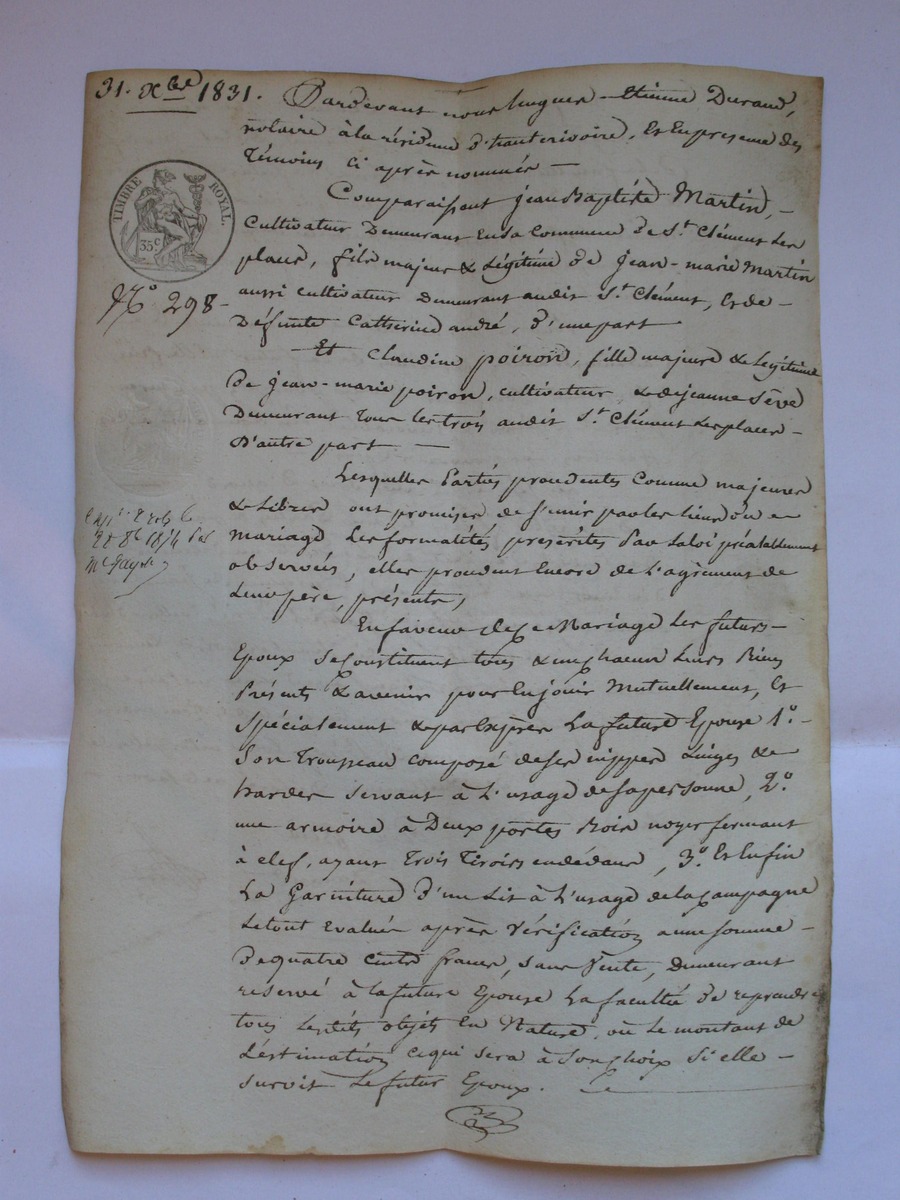 31. Xbre 1831.
Pardevant nous Etienne Durand,
notaire à la résidence d'hauterivoire, Et En presence des
Témoins Ci après nommés —
Comparaissent Jean Baptiste Martin, —
Cultivateur Demeurant En la Commune de St. Clément Les
places, fils majeur & Légitime de Jean-marie Martin
aussi cultivateur demeurant audit St. Clément, Et de —
Défunte Catherine andré, d'une part
Et Claudine poiron, fille majeure & Légitime
De Jean-marie poiron, cultivateur, & de jeanne Sève
Demeurant tous les trois audit St. Clément Les places —
D'autre part —
Lesquelles Parties procedentes Comme majeures
& Libres ont promises de s'unir par les liens du
mariage Les formalités prescrites Par La loi préalablement
observées, elles procedent Encore de L'agrément de
Leurs père, présents,
En faveur de Ce Mariage Les futurs —
Epoux se Constituent tous & un chacun Leurs Biens
Présents & avenir pour En jouir Mutuellement, Et
Spécialement & par Exprès La future Epouse 1°. —
Son Trousseau composé de ses nippes Linges &
hardes servant à L'usage de sa personne, 2°.
une armoire à Deux portes Bois noyer fermant
à clef, ayant Trois Tiroirs endédans, 3°. Et Enfin
La Garniture d'un Lit à L'usage de la Campagne
Le tout Evalué après Vérification a une somme —
De quatre Cents francs, sans Vente, demeurant
reservé à la future Epouse La faculté de reprendre
tous Lesdits objets En Nature, ou Le montant de
L'éstimation ce qui sera à Son Choix Si elle —
survit Le futur Epoux. Le
TIMBRE ROYAL.
35c
N° 298 —
Me